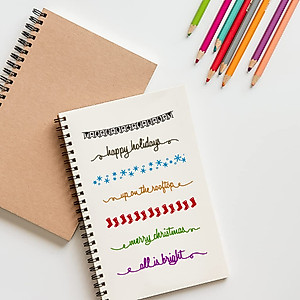 happy holidays
up on the rooftop
merry christmas
all is bright